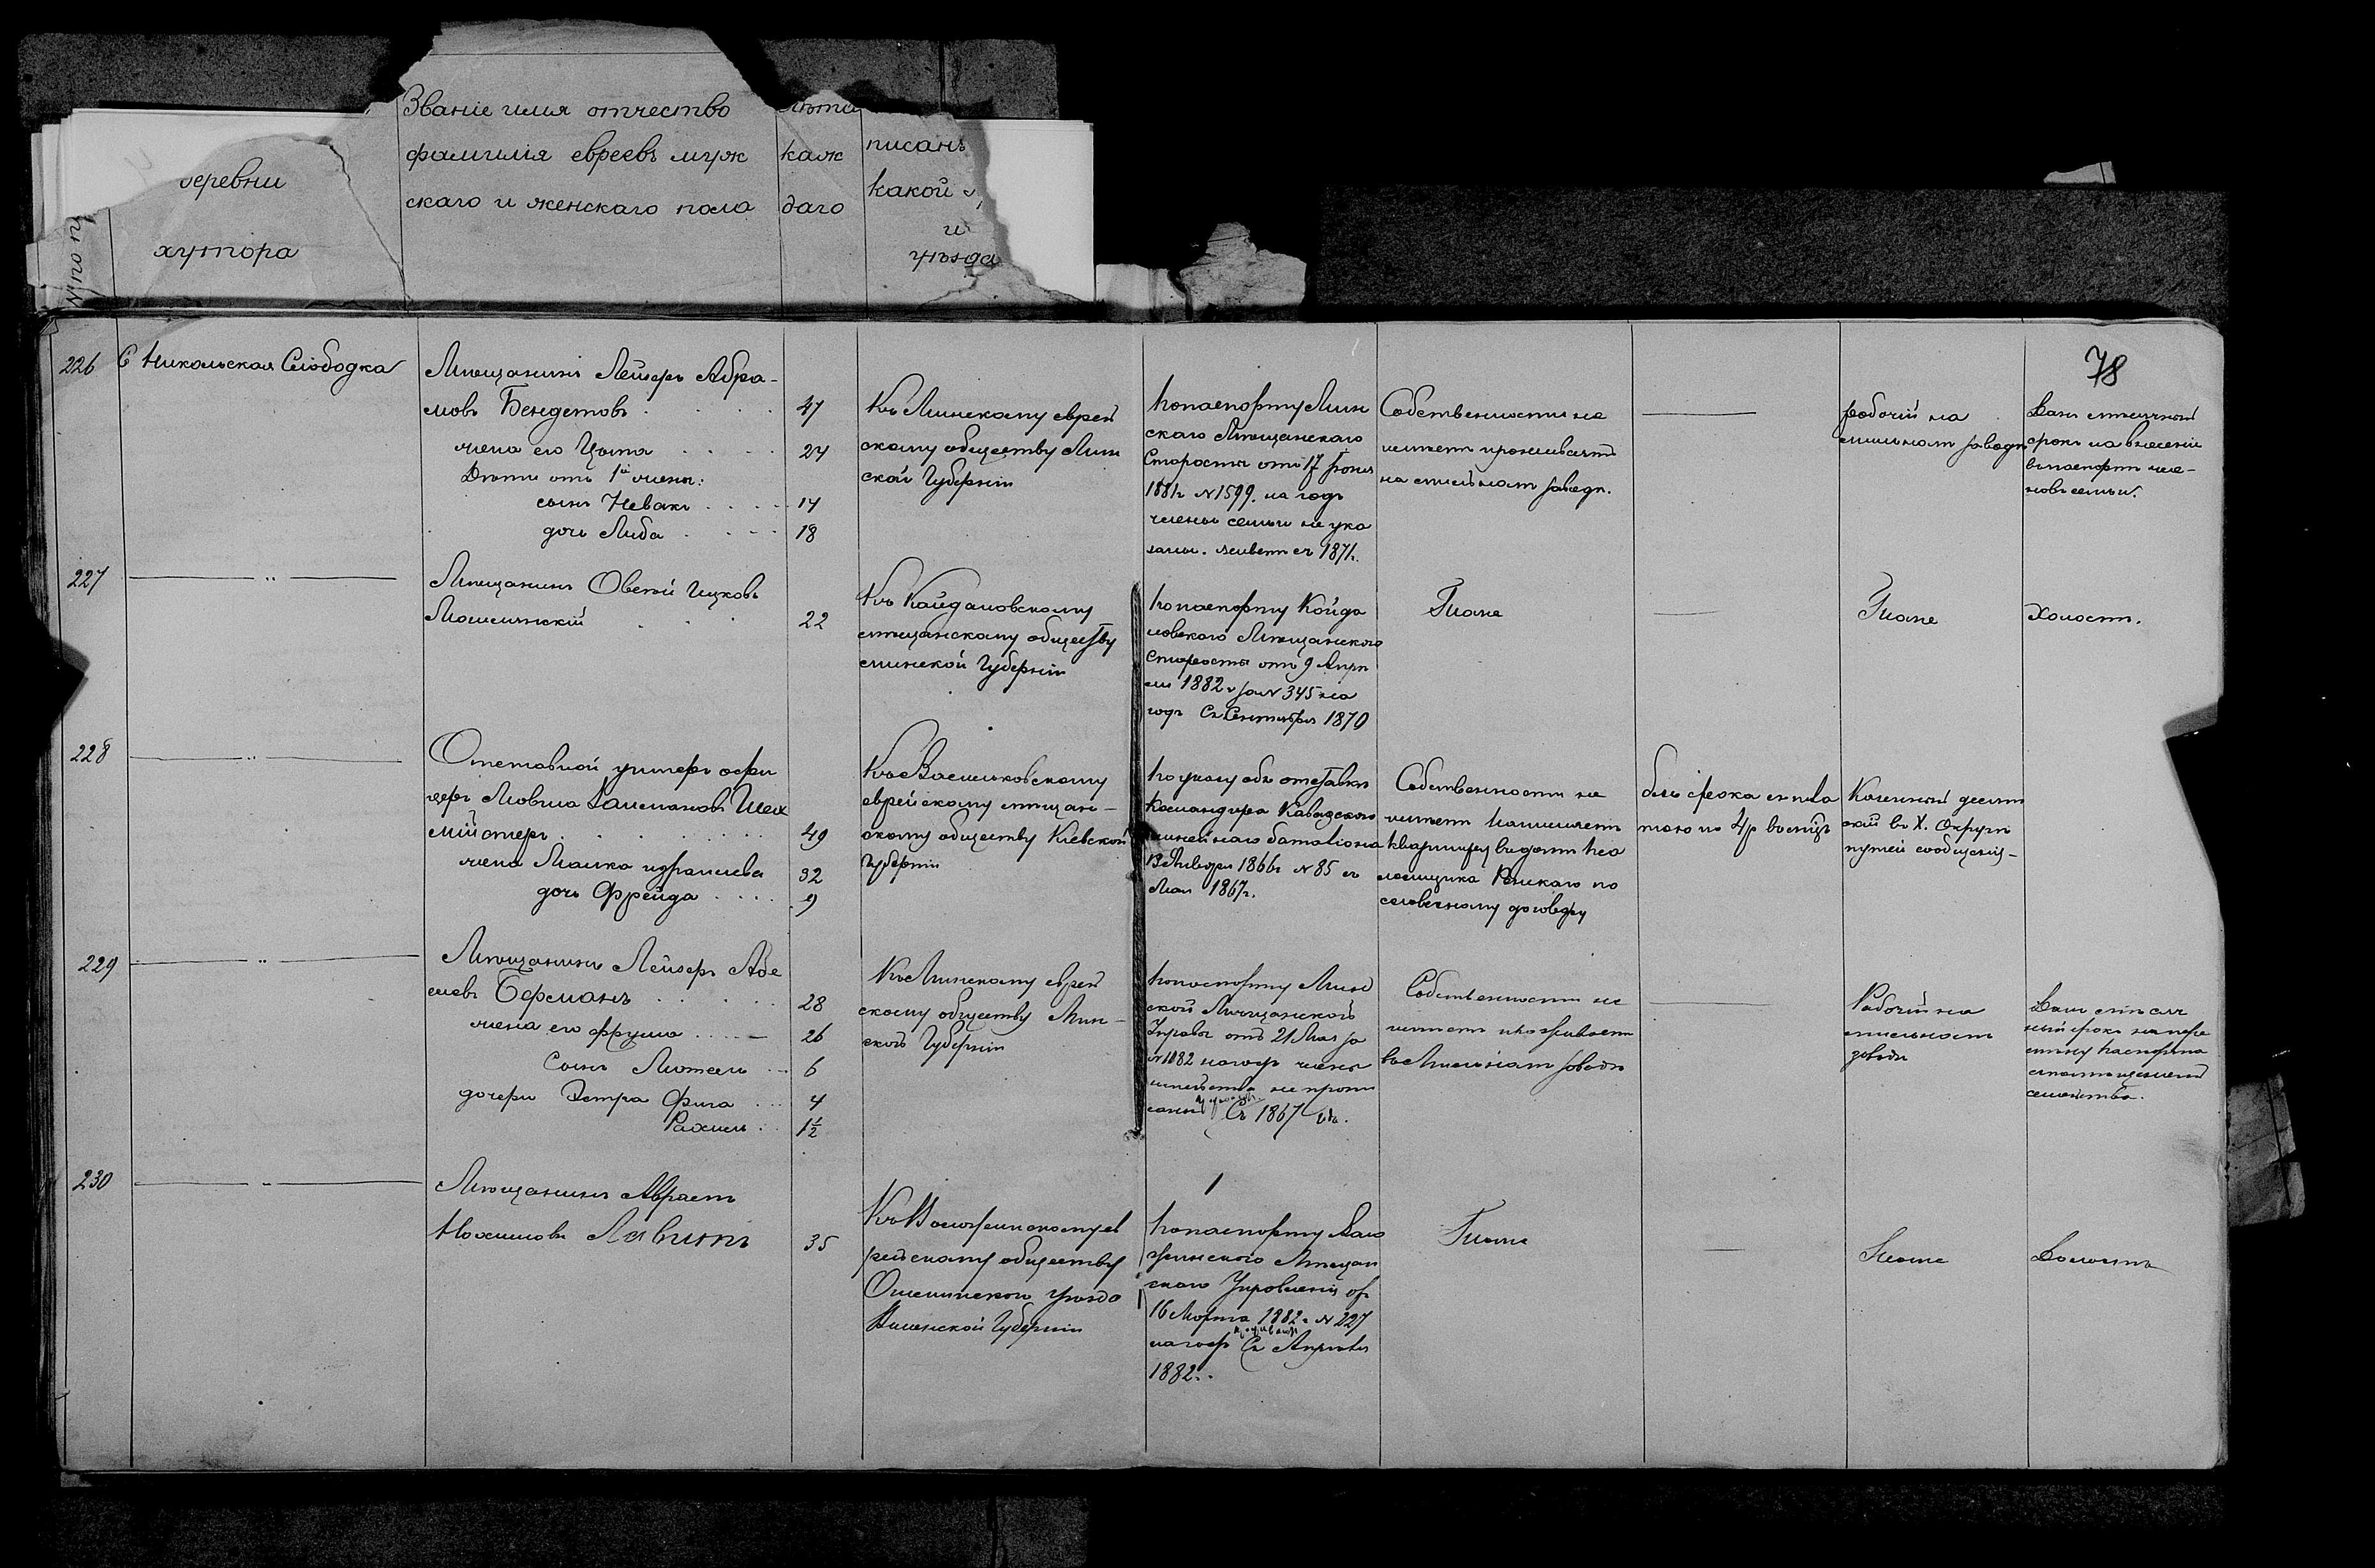 Званіе имя отчество
фамилія евреевъ муж
скаго и женскаго пола
каж
даго
писанъ
какой
и
уѣзда
деревни
хутора
№ по п
78
226 С Никольская Слободка
Мѣщанинъ Лейзеръ Абра-
мовъ Бендетовъ 47
жена его Цыпа 24
Дѣти отъ 1й жены:
сынъ Невахъ 14
дочь Либа 18
Къ Минскому еврей
скому обществу Мин
ской Губерніи
По паспорту Мин
скаго Мѣщанскаго
Старосты отъ 17 Іюня
1881г №1599. на годъ
члены семьи не ука
заны. живетъ съ 1871г.
Собственности не
имѣетъ проживаетъ
на мыльномъ заводѣ.
рабочій на
мыльномъ заводѣ
Данъ мѣсячный
срокъ на внесеніе
въ паспортъ чле-
новъ семьи.
227
Мѣщанинъ Овсей Ицковъ
22
Къ Кайдановскому
мѣщанскому обществу
Минской Губерніи
По паспорту Койда
новскаго Мѣщанскаго
Старосты отъ 9 Апрѣ
ля 1882 г за № 345 на
годъ Съ Сентября 1870
Тоже
Тоже
Холостъ.
228
Отставной унтеръ офи
церъ Мовша Шех
мейстеръ 49
жена Малка Израилева 32
дочь Фрейда 9
Къ Васильковскому
еврейскому мѣщан-
скому обществу Кіевской
Губерніи
По указу объ отставкѣ
Командира Кавказскаго
линейнаго баталіона
13 Января 1866г №85 съ
Мая 1867г.
Собственности не
имѣетъ нанимаетъ
квартиру въ домѣ
по
словесному договору
безъ срока съ пла
тою по 4р въ мѣсяцъ
Казенный десят
скій въ X. Округѣ
путей сообщенія-
229
Мѣщанинъ Лейзеръ Абе
левъ Берманъ 28
жена его Фрума 26
Сынъ Мотель 6
дочери Эстра Фига 4
Рахиль 1½
Къ Минскому еврей
скому обществу Мин-
ской Губерніи
По паспорту Мин
ской Мѣщанской
Управы отъ 21 Мая за
№1082 на годъ члены
семейства не пропи
саны проживаетъ Съ 1867 г.
Собственности не
имѣетъ проживаетъ
въ Мыльномъ заводѣ
Рабочій на
мыльномъ
заводѣ
Данъ мѣсяч
ный срокъ на пере
мѣну паспорта
семейства.
230
Мѣщанинъ Абрамъ
Нохимовъ Лявинъ 35
Къ Воложинскому ев
рейскому обществу
Ошмянскаго уѣзда
Виленской Губерніи
По паспорту Воло
жинскаго Мѣщан
скаго Управленія от
16 Марта 1882 г № 227
на годъ проживаетъ Съ Апрѣля
1882г.
Тоже
Тоже
Холостъ